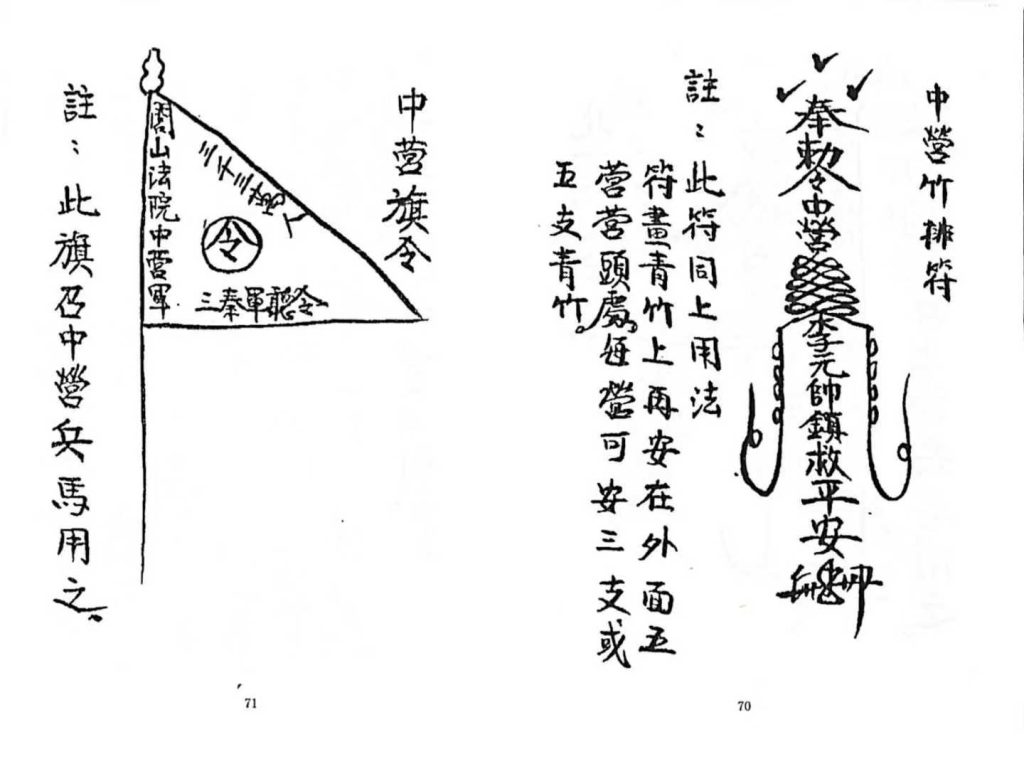 中營竹排符
奉勅令中營
李元帥鎮救平安
註：此符同上用法
符畫青竹上再安在外面五
营营頭處，每營可安三支或
五支青竹。
70
中营旗令
三千三萬人
令
三秦軍聽令
閭山法院中营軍
註：此旗召中營兵馬用之。
71